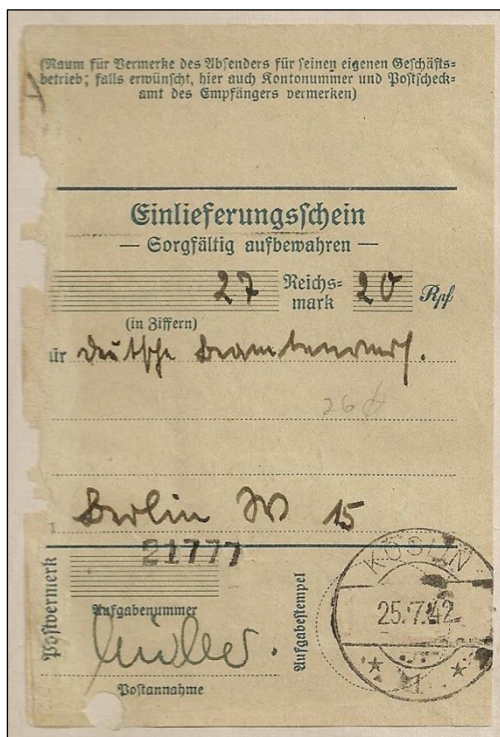 (Raum für Vermerke des Absenders für seinen eigenen Geschäfts-
betrieb; falls erwünscht, hier auch Kontonummer und Postscheck-
amt des Empfängers vermerken)
Einlieferungsschein
— Sorgfältig aufbewahren —
27 Reichs-
mark 20 Rpf
(in Ziffern)
ür Deutsche
26
Berlin W 15
21777
Postvermerk
Aufgabenummer
Aufgabestempel
KÖSLIN
25.7.42
Postannahme